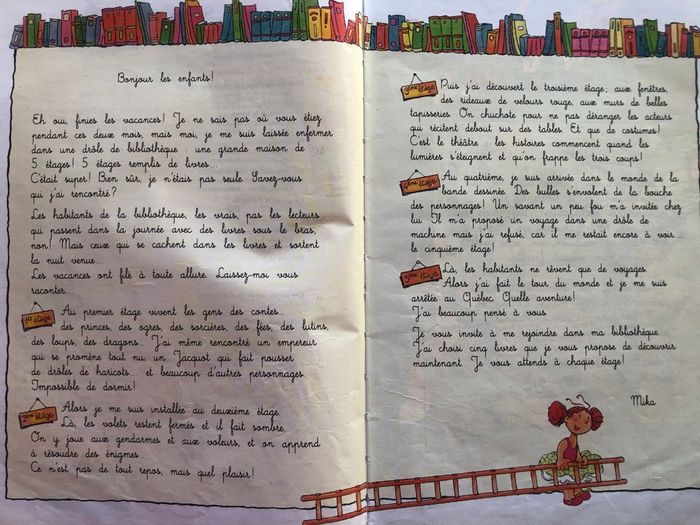 Bonjour les enfants!
Eh oui, finies les vacances! Je ne sais pas où vous étiez
pendant ces deux mois, mais moi, je me suis laissée enfermer
dans une drôle de bibliothèque : une grande maison de
5 étages! 5 étages remplis de livres...
C'était super! Bien sûr, je n'étais pas seule. Savez-vous
qui j'ai rencontré?
Les habitants de la bibliothèque, les vrais, pas les lecteurs
qui passent dans la journée avec des livres sous le bras,
non! Mais ceux qui se cachent dans les livres et sortent
la nuit venue...
Les vacances ont filé à toute allure. Laissez-moi vous
raconter...
1er étage Au premier étage vivent les gens des contes...
des princes, des ogres, des sorcières, des fées, des lutins,
des loups, des dragons... J'ai même rencontré un empereur
qui se promène tout nu, un Jacquot qui fait pousser
de drôles de haricots... et beaucoup d'autres personnages.
Impossible de dormir!
2ème étage Alors je me suis installée au deuxième étage.
Là, les volets restent fermés et il fait sombre.
On y joue aux gendarmes et aux voleurs, et on apprend
à résoudre des énigmes...
Ce n'est pas de tout repos, mais quel plaisir!
3ème étage Puis j'ai découvert le troisième étage; aux fenêtres,
des rideaux de velours rouge, aux murs de belles
tapisseries. On chuchote pour ne pas déranger les acteurs
qui récitent debout sur des tables. Et que de costumes!
C'est le théâtre : les histoires commencent quand les
lumières s'éteignent et qu'on frappe les trois coups!
4ème étage Au quatrième, je suis arrivée dans le monde de la
bande dessinée. Des bulles s'envolent de la bouche
des personnages! Un savant un peu fou m'a invitée chez
lui. Il m'a proposé un voyage dans une drôle de
machine mais j'ai refusé, car il me restait encore à voir...
le cinquième étage!
5ème étage Là, les habitants ne rêvent que de voyages.
Alors j'ai fait le tour du monde et je me suis
arrêtée au Québec. Quelle aventure!
J'ai beaucoup pensé à vous.
Je vous invite à me rejoindre dans ma bibliothèque.
J'ai choisi cinq livres que je vous propose de découvrir
maintenant. Je vous attends à chaque étage!
Mika